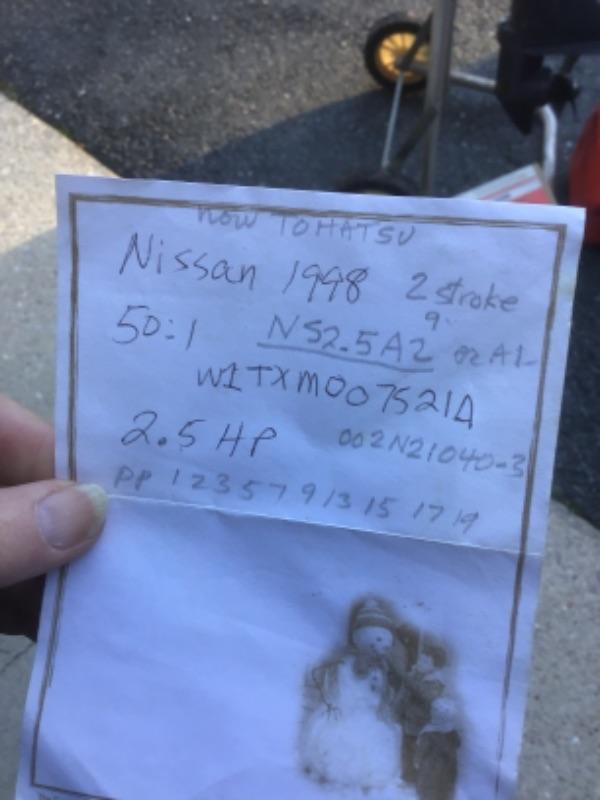 now TOHATSU
Nissan 1998 2 stroke
50:1 NS2.5A2 or A1
W1TXM007521A
2.5 HP 002N21040-3
PP 1 2 3 5 7 9 13 15 17 19